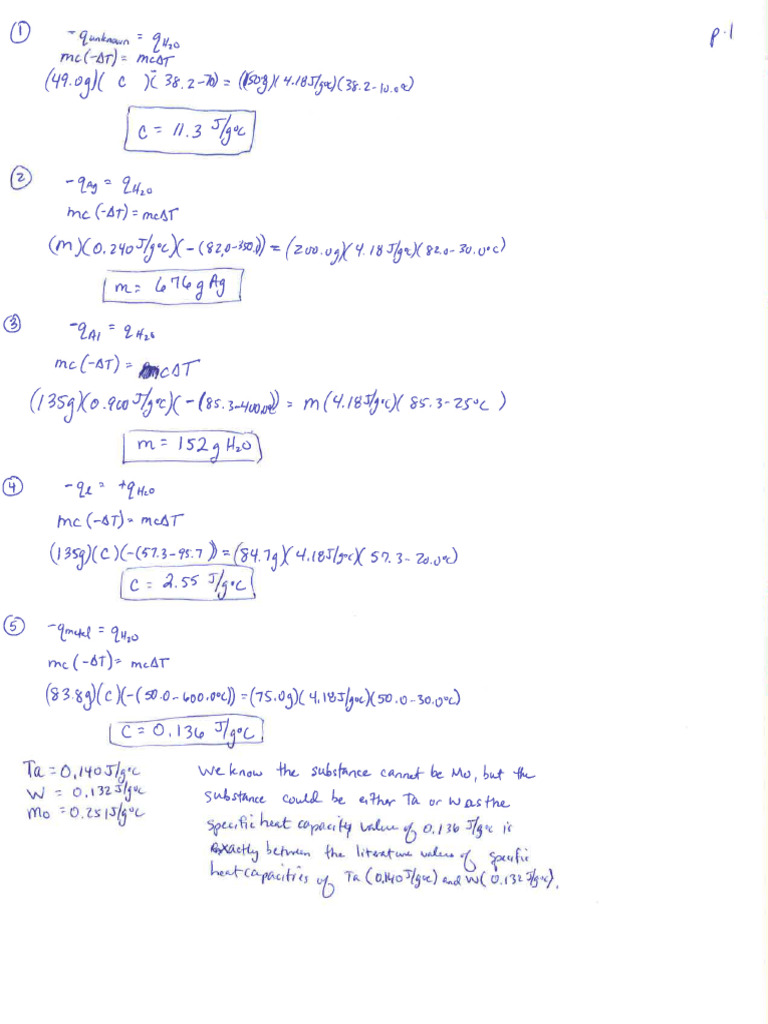 p.1
① -q unknown = q H₂O
mc(-ΔT) = mcΔT
(49.0g)( c )(-(38.2-70)) = (150g)(4.18J/g°C)(38.2-10.0°C)
C = 11.3 J/g°C
② -q Ag = q H₂O
mc(-ΔT) = mcΔT
(m)(0.240J/g°C)(-(82.0-350.)) = (200.0g)(4.18J/g°C)(82.0-30.0°C)
m = 676g Ag
③ -q Al = q H₂O
mc(-ΔT) = mcΔT
(135g)(0.900J/g°C)(-(85.3-400.0°C)) = m(4.18J/g°C)(85.3-25°C)
m = 152g H₂O
④ -q = +q H₂O
mc(-ΔT) = mcΔT
(135g)(C)(-(57.3-95.7)) = (84.7g)(4.18J/g°C)(57.3-20.0°C)
C = 2.55 J/g°C
⑤ -q metal = q H₂O
mc(-ΔT) = mcΔT
(83.8g)(C)(-(50.0-600.0°C)) = (75.0g)(4.18J/g°C)(50.0-30.0°C)
C = 0.136 J/g°C
Ta = 0.140J/g°C
W = 0.132J/g°C
Mo = 0.251J/g°C
We know the substance cannot be Mo, but the
substance could be either Ta or W as the
specific heat capacity value of 0.136 J/g°C is
exactly between the literature values of specific
heat capacities of Ta (0.140J/g°C) and W (0.132J/g°C).